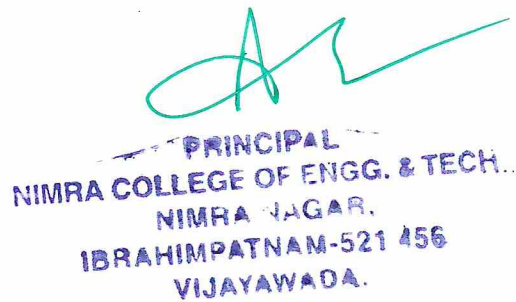 PRINCIPAL
NIMRA COLLEGE OF ENGG. & TECH.
NIMRA NAGAR.
IBRAHIMPATNAM-521 456
VIJAYAWADA.